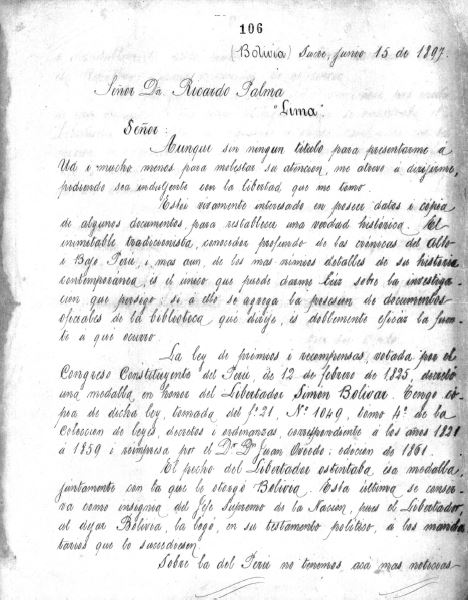 106
(Bolivia) Sucre, junio 15 de 1897.
Señor Dn. Ricardo Palma
"Lima".
Señor:
Aunque sin ningun título para presentarme a
Ud i mucho menos para molestar su atencion, me atrevo a dirijirme,
pidiendo sea induljente con la libertad que me tomo.
Estoi vivamente interesado en poseer datos i copia
de algunos documentos, para restablecer una verdad histórica. El
inimitable tradicionista, conocedor profundo de las crónicas del Alto
i Bajo Perú, i mas aun, de los mas nimios detalles de su historia
contemporanea, es el único que puede darme luz sobre la investiga-
cion que persigo; si á ello se agrega la posesion de documentos
oficiales de la biblioteca que dirije, es doblemente eficaz la fuen-
te a que ocurro.
La ley de premios i recompensas, votada por el
Congreso Constituyente del Perú, de 12 de febrero de 1825, decretó
una medalla, en honor del Libertador Simon Bolivar. Tengo co-
pia de dicha ley, tomada del f.21, Nº 1049, tomo 4º de la
Coleccion de leyes, decretos i ordenanzas, correspondiente á los años 1821
á 1859 i reimpresa por el Dr. Dn Juan Oviedo: edicion de 1861.
El pecho del Libertador ostentaba esa medalla
juntamente con la que le otorgó Bolivia. Esta última se conser-
va como insignia del Jefe Supremo de la Nacion, pues el Libertador,
al dejar Bolivia, la legó, en su testamento político, á los manda-
tarios que le sucediesen.
Sobre la del Perú no tenemos, acá mas noticias